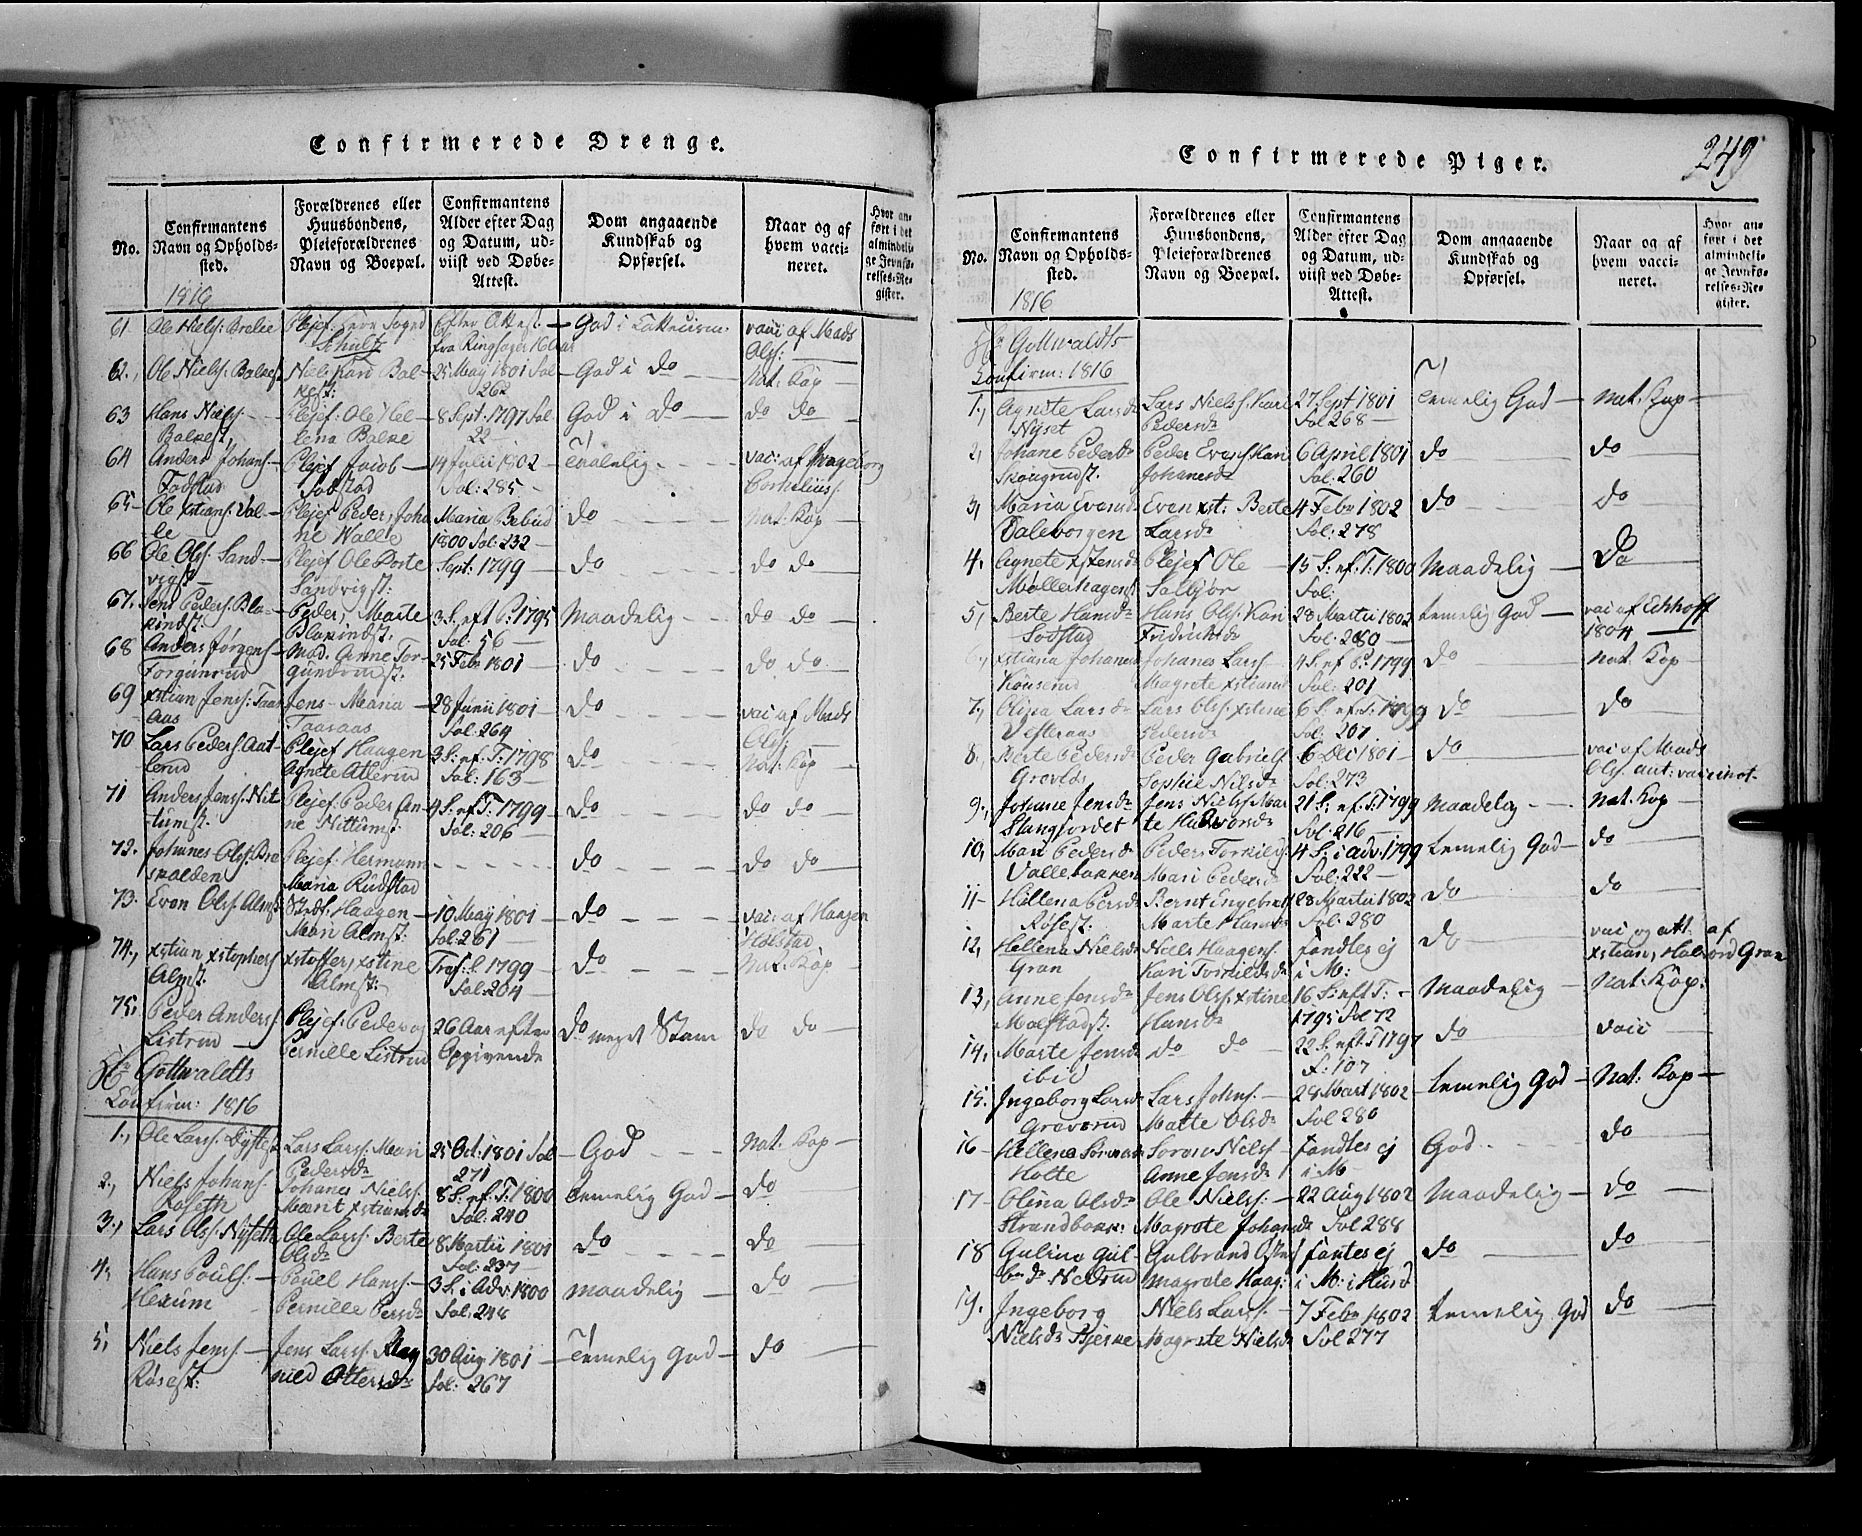 Confirmerede Drenge.
No.
Confirmantens Navn og Opholds-sted.
Forældrenes eller Huusbondens, Pleieforældrenes Navn og Boepæl.
Confirmantens Alder efter Dag og Datum, ud-viist ved Døbe-Attest.
Dom angaaende Kundskab og Opførsel.
Naar og af hvem vacci-neret.
Hvor an-ført i det almindeli-ge Jevnfø-relses-Re-gister.
1816
61 Ole Niels: Plejef: Schultz Efter Attest fra Ringsager 16 Aar God i vaci af Mads Ols:
62., Ole Niels: Balkest. Niels Kari Bal-kest: 25 May 1801 Fol 262 God i do Nat: Kop
63 Hans Niels: Balkest, Plejef: Ole Hel-lena Balke 8 Sept: 1797 Fol 22 God i do do do
64 Anders Johans: Fodstad Plejef Jacob Sobstad 14 Julii 1802 Fol: 285 Taalelig vac: af Ingeborg Cornelius:
65 Ole xstians: Val-le Plejef Peder, Joha-ne Walle Maria Bebud 1800 Fol: 232 do Nat: Kop
66 Ole Ols: Sand-vigst Plejef Ole Dorte Sandvigst: Sept: 1799 do do do
67. Jens Peders: Bla-kirdst. Peder, Marte 3 S: eft P: 1795 Fol: 56 Maadelig do do
68 Anders Jørgens Torgunrud Mod. Anne Tor-gundrudst: 25 Febr 1801 do do do
69 xstian Jens: Taas-aas Jens Maria Taaraas 28 Junii 1801 Fol: 264 do vac af Mads Ols:
70 Lars Peders: Aat-lerud Plejef Haagen Agnete Atlerud 3 S: ef: T: 1798 Fol: 163 do Nat: Kop
71 Anders Jens: Nit-tumst. Plejef: Peder An-ne Nittumst: 4 S: ef T: 1799 Fol: 206 do do do
72. Johanes Ols: Bre-skalden Plejef: Hermann Maria Rudstad do do do
73. Even Ols: Almst Stedf: Haagen Mari Almst: 10 May 1801 Fol: 261 do vac: af Haagen Holstad
74., xstian xstophers Almst. xstoffer, xstine Almst: 1799 Fol: 204 do Nat: Kop
75, Peder Anders: Listrud Plejef: Peder og Pernille Listrud 26 Aar efter Opgivende do meget Stam do do
Hr Gottwaldts
Confirm: 1816
1., Ole Lars: Lars Lars: Mari Pedersdr 25 Oct: 1801 Fol 271 God Nat. Kop
2., Niels Johans: Roseth Johanes Niels: Marit xstiansdr 8 S: ef: T: 1800 Fol: 240 temelig God do
3., Lars Ols: Nysseth Ole Lars: Berte Olsdr 8 Martii 1801 Fol: 237 do do
4, Hans Pouls: Hexum Pouel Hans: Pernille Persdr 3 S: i Adv: 1800 Fol: 248 maadelig do
5, Niels Jens: Røsest: Jens Lars: Rag-nild Ottersdr 30 Aug 1801 Fol: 267 Temelig God do
Confirmerede Piger.
249
No.
Confirmantens Navn og Opholds-sted.
Forældrenes eller Huusbondens, Pleieforældrenes Navn og Boepæl.
Confirmantens Alder efter Dag og Datum, ud-viist ved Døbe-Attest.
Dom angaaende Kundskab og Opførsel.
Naar og af hvem vacci-neret.
Hvor an-ført i det almindeli-ge Jevnfø-relses-Re-gister.
1816
Hr Gottwaldts
Confirm: 1816
1., Agnete Larsdr Nyset Lars Niels: Kari Pedersdr 27 Sept 1801 Fol 268 Temelig God Nat. Kop
2, Johane Pedersdr Skougrudst. Peder Evens Kari Johanesdr 6 April 1801 Fol: 260 do do
3, Maria Evensdr Daleborgen Even xst: Berte Larsdr 4 Febr 1802 Fol: 278 do do
4. Agnete xstensdr Møllerhagenst Plejef Ole Solbjør 15 S: ef: T: 1800 Fol: Maadelig do
5, Berte Hansdr Sodstad Hans Ols: Kari Fridriksdr 28 Martii 1802 Fol: 280 temelig God vac af Echhoff 1804
6., xstiana Johanesdr Konserud Johanes Lars: Magrete xstiansdr 4 S: ef P: 1799 Fol: 201 do Nat: Kop
7, Olina Larsdr Vesteraas Lars Ols: xstine Pedersdr 6 S: ef: T: 1799 Fol: 207 do do
8. Berte Pedersdr Grovlds Peder Gabriels: Sophie Nilsdr 6 Dec 1801 Fol: 273 do vac af Mads Ols: ant: vaccinat
9., Johane Jensdr Stangjordet Jens Niels: Mar-te Halvorsdr 21 S: ef: T: 1799 Fol. 216 maadelig Nat. Kop
10, Mari Pedersdr Vallebakken Peder Torkils: Mari Pedersdr 4 S: i Adv: 1799 Fol: 222 temelig God do
11 Hellena Persdr Røsest: Bernt Engebret Marte Hansdr 28 Martii 1802 Fol: 280 do do
12, Hellena Nielsdr Gran Niels Haagens: Kari Torkildsdr fandtes ej i M: do vac og att. af xstian, Halvord Gran
13, Anne Jensdr Molstadst. Jens Ols: xstine Hansdr 16 S: eft T: 1795 Fol 72 Maadelig Nat: Kop:
14, Marte Jensdr ibid do do 22 S: eft T 1797 F: 107 do vacc
15. Ingeborg Larsdr Graverud Lars Johns: Marte Olsdr 28 Mart 1802 Fol 280 temelig God Nat: Kop
16 Hellena Sørensdr Holte Søren Niels: Anne Jensdr fandtes ej i M God do
17 Olina Olsdr Strandbakk: Ole Niels: Magrete Johansdr 22 Aug 1802 Fol 288 Maadelig do
18 Guline Gul-br:dr Nedrud Gulbrand Magrete Haag: fantes ej i M: i Hurd do do
19. Ingeborg Nielsdr Bjerne Niels Lars: Magrete Nielsdr 7 Febr 1802 Fol 277 temelig God do